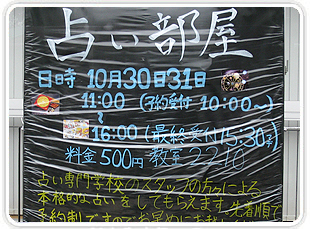 占い部屋
日時 10月30日31日
11:00 (予約受付 10:00〜)
〜
16:00 (最終受付15:30)
料金 500円 教室
占い専門学校のスタッフの方々による
本格的な占いをしてもらえます。先着順で
予約制ですのでお早めに